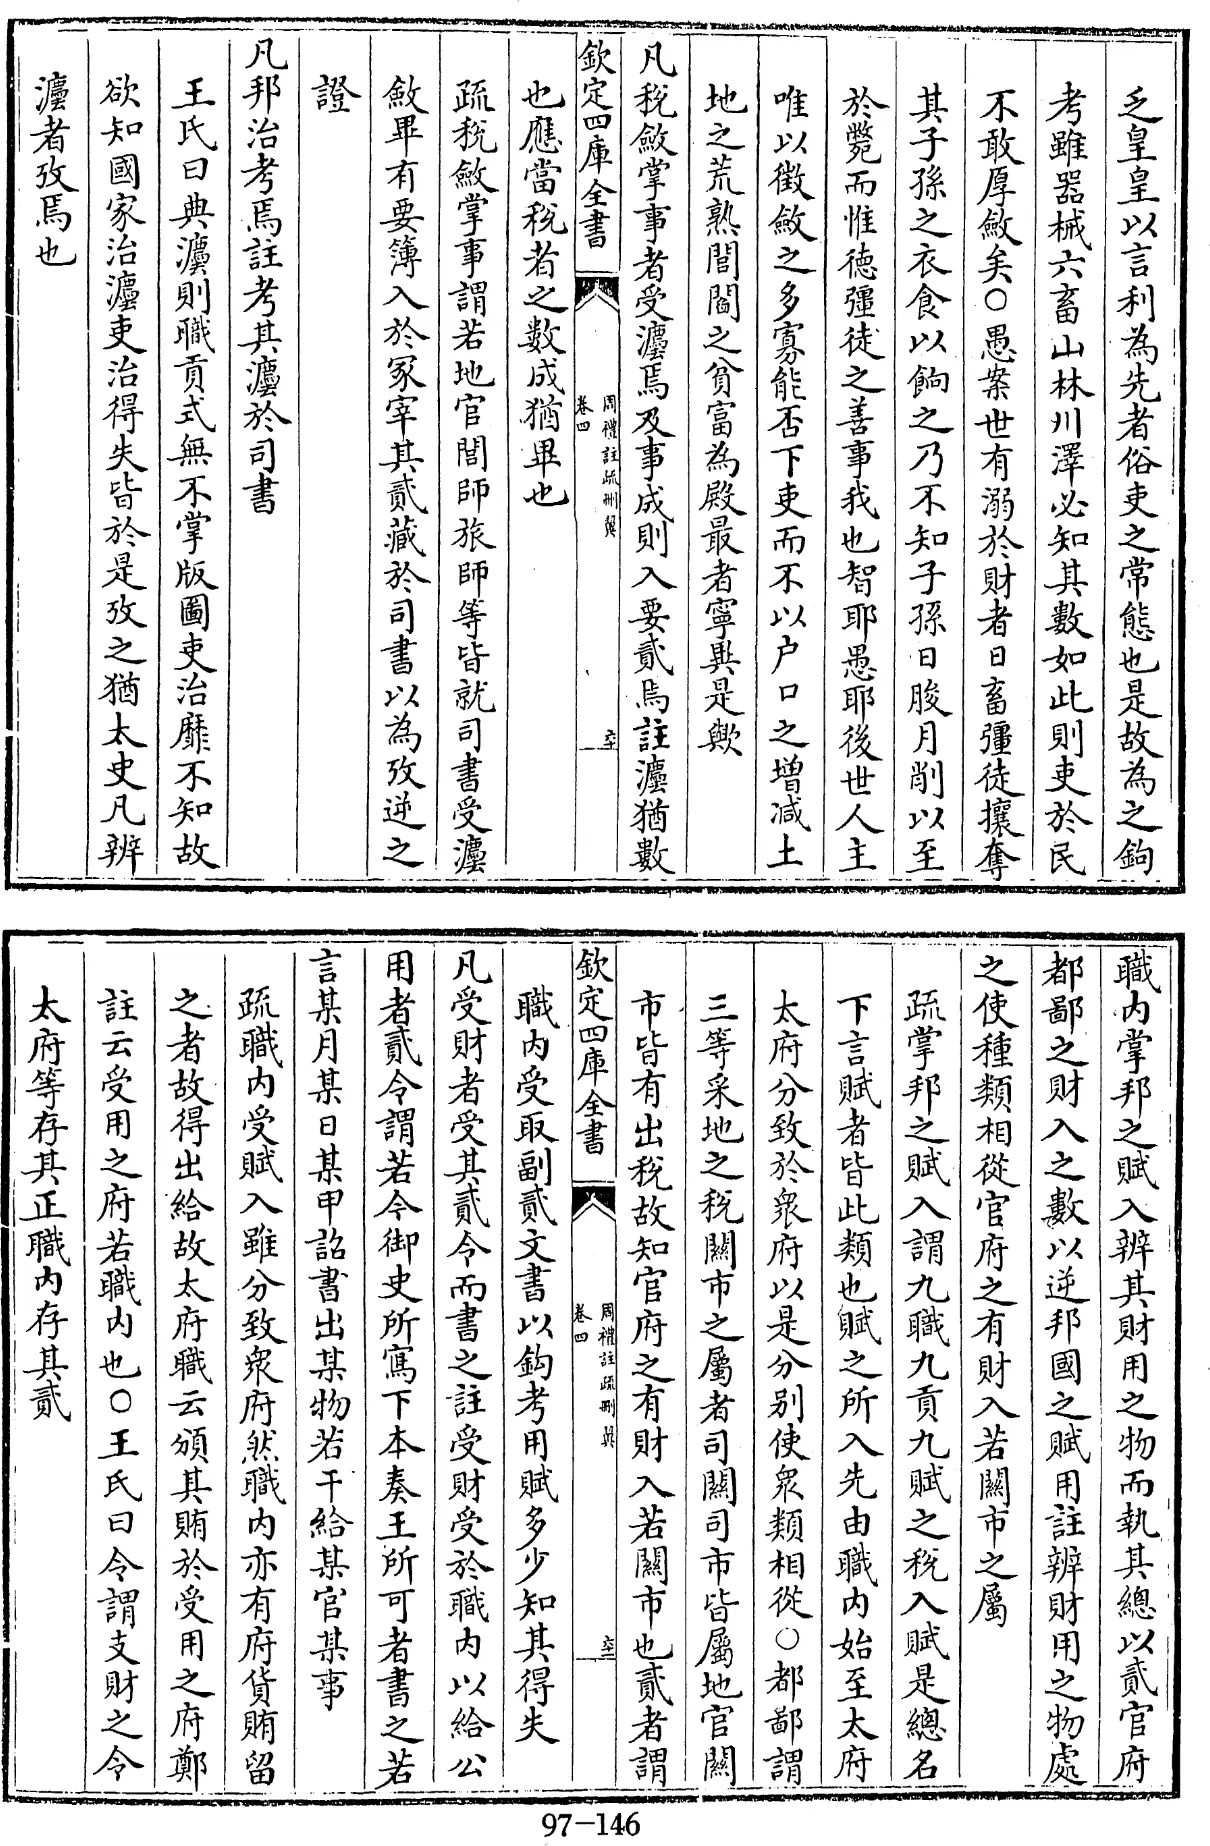 乏皇皇以言利為先者俗吏之常態也是故為之鉤
考雖器械六畜山林川澤必知其數如此則吏於民
不敢厚斂矣○愚案世有溺於財者日畜彊徒攘奪
其子孫之衣食以餉之乃不知子孫日朘月削以至
於斃而惟德彊徒之善事我也智耶愚耶後世人主
唯以徵斂之多寡能否下吏而不以户口之增減土
地之荒熟閭閻之貧富為殿最者寧異是歟
凡稅斂掌事者受灋焉及事成則入要貳焉註灋猶數
欽定四庫全書
周禮註疏刪翼
卷四
六十
也應當稅者之數成猶畢也
疏稅斂掌事謂若地官閭師旅師等皆就司書受灋
斂畢有要簿入於冢宰其貳藏於司書以為攷逆之
證
凡邦治考焉註考其灋於司書
王氏曰典灋則職貢式無不掌版圖吏治靡不知故
欲知國家治灋吏治得失皆於是攷之猶太史凡辨
灋者攷焉也
職内掌邦之賦入辨其財用之物而執其總以貳官府
都鄙之財入之數以逆邦國之賦用註辨財用之物處
之使種類相從官府之有財入若關市之屬
疏掌邦之賦入謂九職九貢九賦之稅入賦是總名
下言賦者皆此類也賦之所入先由職内始至太府
太府分致於衆府以是分别使衆類相從○都鄙謂
三等采地之稅關市之屬者司關司市皆屬地官關
市皆有出稅故知官府之有財入若關市也貳者謂
欽定四庫全書
周禮註疏刪翼
卷四
六十一
職内受取副貳文書以鈎考用賦多少知其得失
凡受財者受其貳令而書之註受財受於職内以給公
用者貳令謂若今御史所寫下本奏王所可者書之若
言某月某日某甲詔書出某物若干給某官某事
疏職内受賦入雖分致衆府然職内亦有府貨賄留
之者故得出給故太府職云頒其賄於受用之府鄭
註云受用之府若職内也○王氏曰令謂支財之令
太府等存其正職内存其貳
97-146